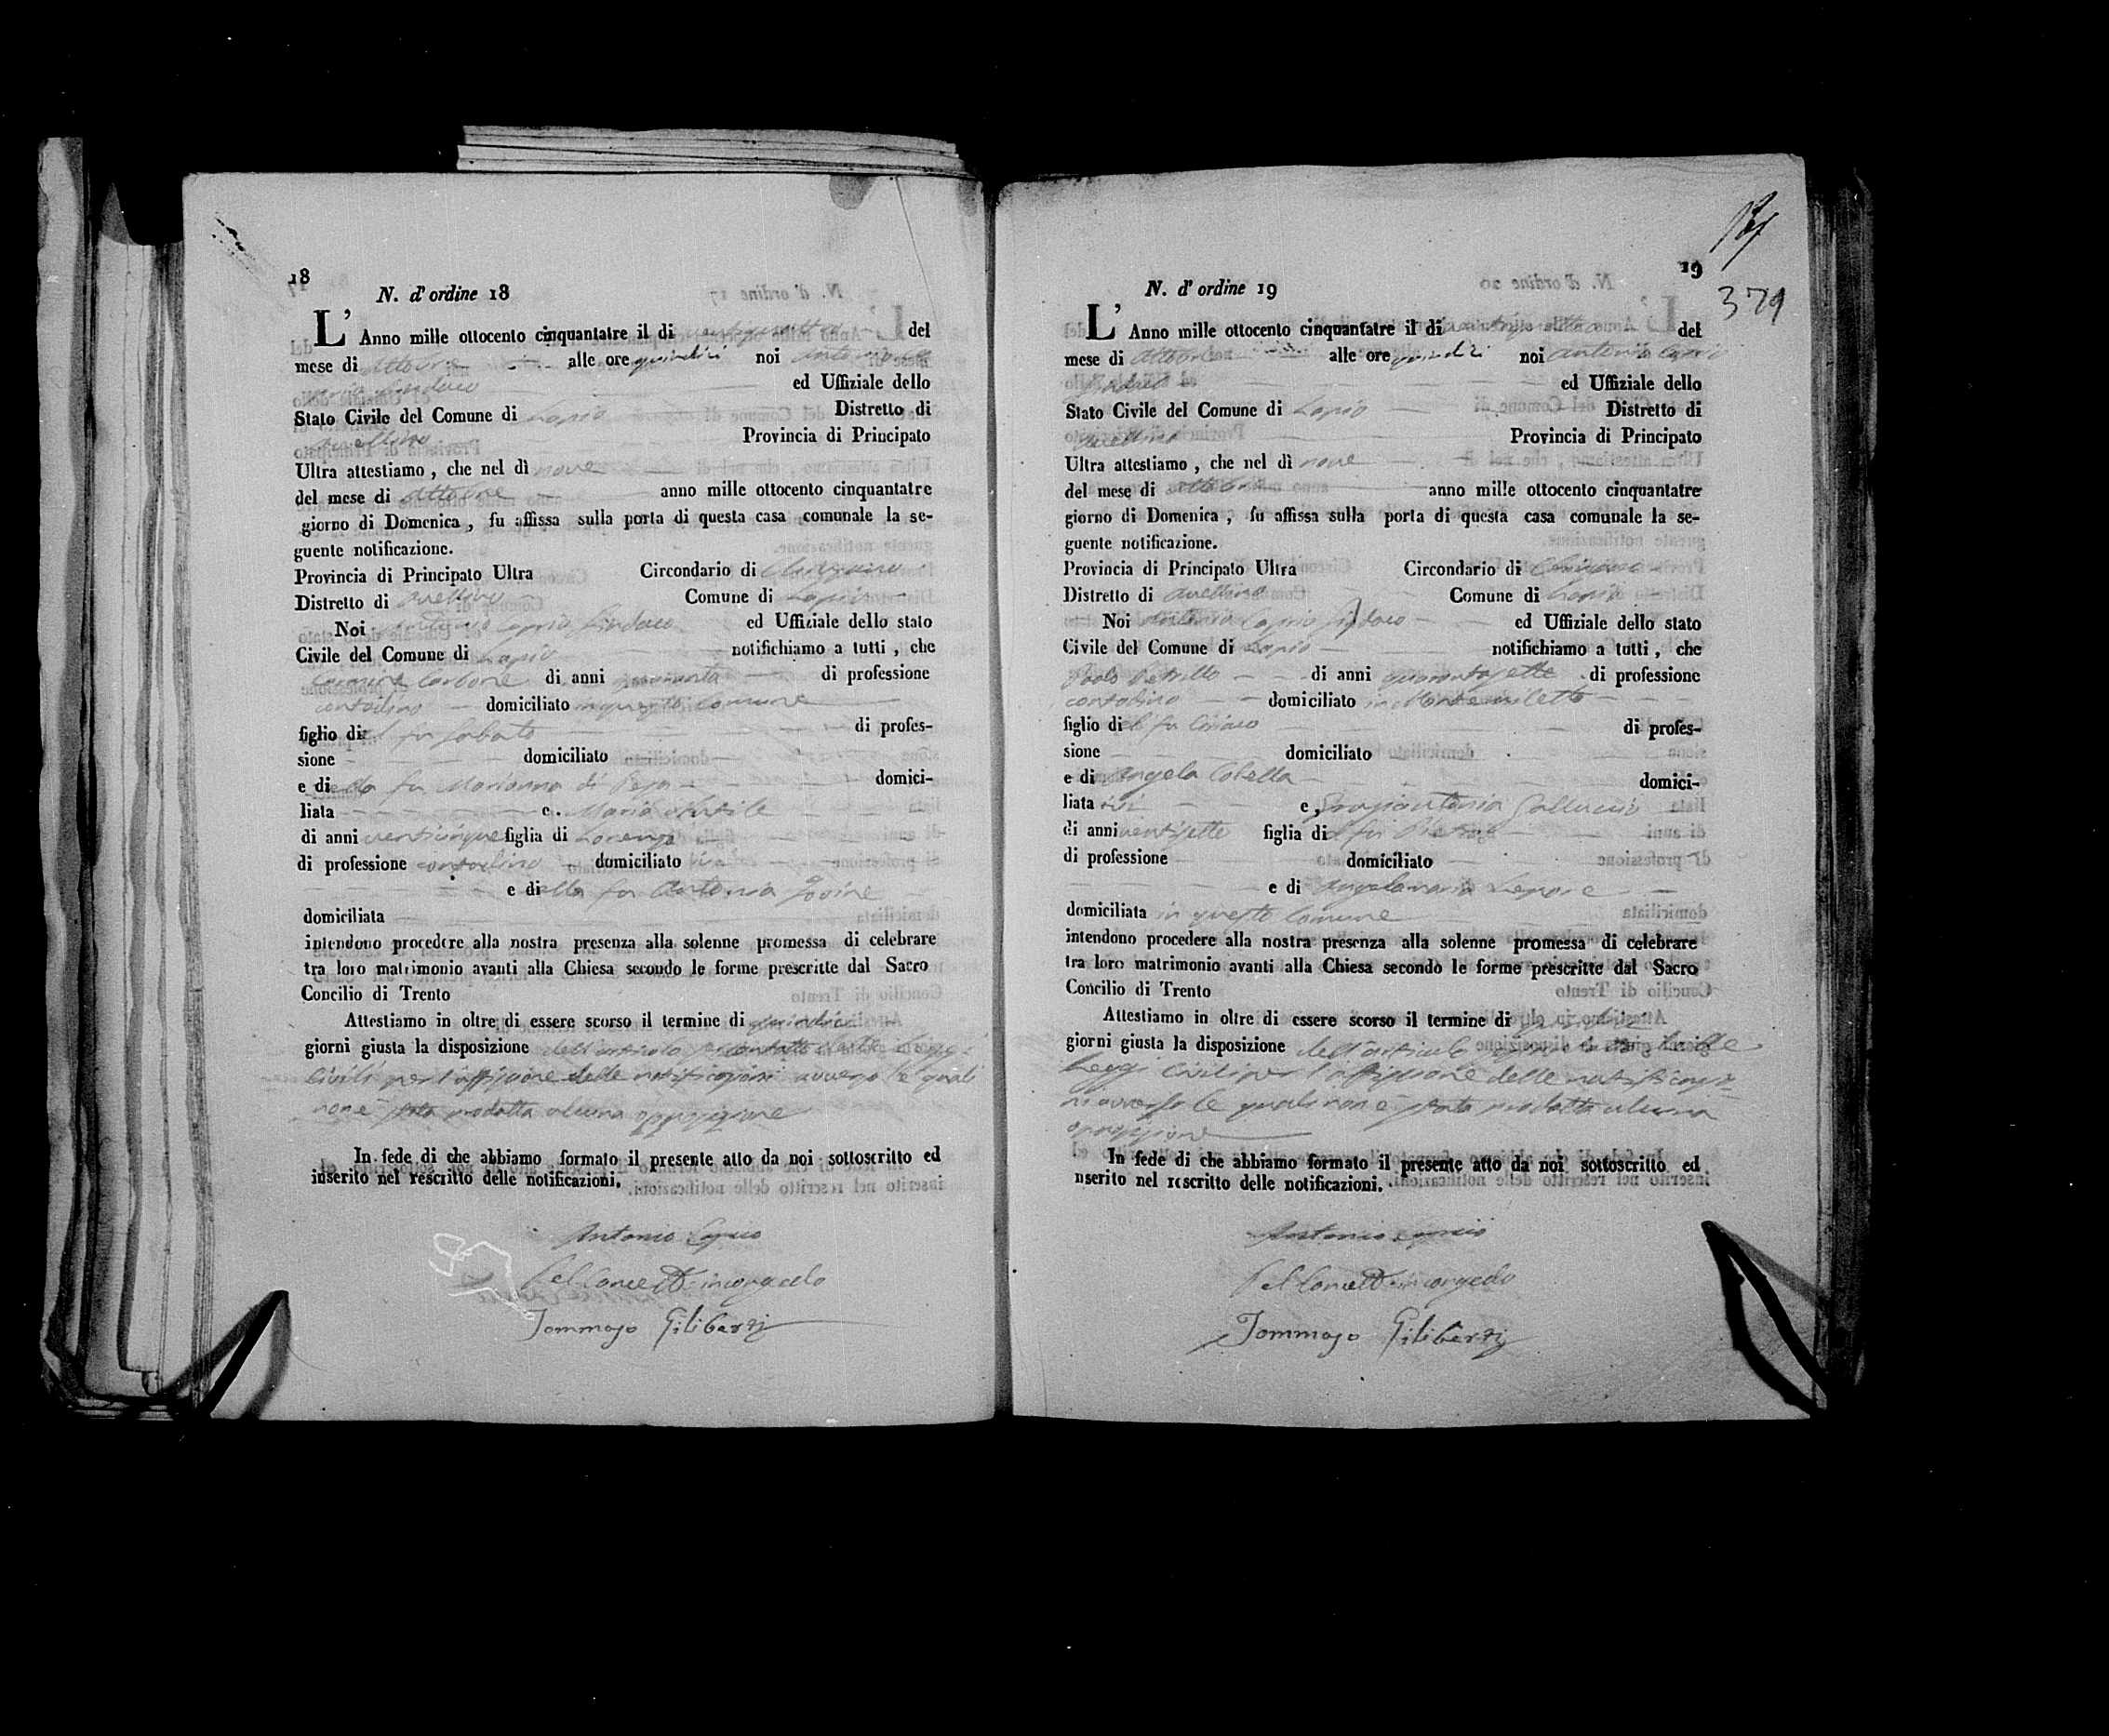 18
N. d' ordine 18
L' Anno mille ottocento cinquantatre il di ventiquattro del
mese di Ottobre alle ore quindici noi Antonio
Caprio Sindaco ed Uffiziale dello
Stato Civile del Comune di Lapio Distretto di
Avellino Provincia di Principato
Ultra attestiamo , che nel dì nove
del mese di Ottobre anno mille ottocento cinquantatre
giorno di Domenica , fu affissa sulla porta di questa casa comunale la se-
guente notificazione.
Provincia di Principato Ultra Circondario di
Distretto di Avellino Comune di Lapio
Noi Antonio Caprio Sindaco ed Uffiziale dello stato
Civile del Comune di Lapio notifichiamo a tutti , che
Carbone di anni di professione
contadino domiciliato in questo Comune
figlio di l fu Sabato di profes-
sione domiciliato
e di ella fu Marianna di domici-
liata e. Maria
di anni venticinque figlia di Lorenzo
di professione contadino domiciliato ivi
e di ella fu Antonia Iovine
domiciliata
intendono procedere alla nostra presenza alla solenne promessa di celebrare
tra loro matrimonio avanti alla Chiesa secondo le forme prescritte dal Sacro
Concilio di Trento
Attestiamo in oltre di essere scorso il termine di quindici
giorni giusta la disposizione dell'articolo delle Leggi
Civili per l'affissione delle notificazioni avverso le quali
non è stata prodotta alcuna opposizione
In fede di che abbiamo formato il presente atto da noi sottoscritto ed
inserito nel rescritto delle notificazioni.
Antonio Caprio
Tommaso Giliberti
19
379
N. d' ordine 19
L' Anno mille ottocento cinquantatre il di ventiquattro del
mese di Ottobre alle ore quindici noi Antonio Caprio
Sindaco ed Uffiziale dello
Stato Civile del Comune di Lapio Distretto di
Avellino Provincia di Principato
Ultra attestiamo , che nel dì nove
del mese di Ottobre anno mille ottocento cinquantatre
giorno di Domenica , fu affissa sulla porta di questa casa comunale la se-
guente notificazione.
Provincia di Principato Ultra Circondario di
Distretto di Avellino Comune di Lapio
Noi Antonio Caprio Sindaco ed Uffiziale dello stato
Civile del Comune di Lapio notifichiamo a tutti , che
Paolo Petrillo di anni quarantasette di professione
contadino domiciliato in Montemiletto
figlio di l fu Ciriaco di profes-
sione domiciliato
e di Angela Cobella domici-
liata ivi e, Graziantonia Galluccio
di anni ventisette figlia di l fu Pietro
di professione domiciliato
e di Angelamaria Lepore
domiciliata in questo Comune
intendono procedere alla nostra presenza alla solenne promessa di celebrare
tra loro matrimonio avanti alla Chiesa secondo le forme prescritte dal Sacro
Concilio di Trento
Attestiamo in oltre di essere scorso il termine di quindici
giorni giusta la disposizione dell'articolo delle
Leggi Civili per l'affissione delle notificazio-
ni avverso le quali non è stata prodotta alcuna
opposizione
In fede di che abbiamo formato il presente atto da noi sottoscritto ed
nserito nel rescritto delle notificazioni.
Antonio Caprio
Tommaso Giliberti